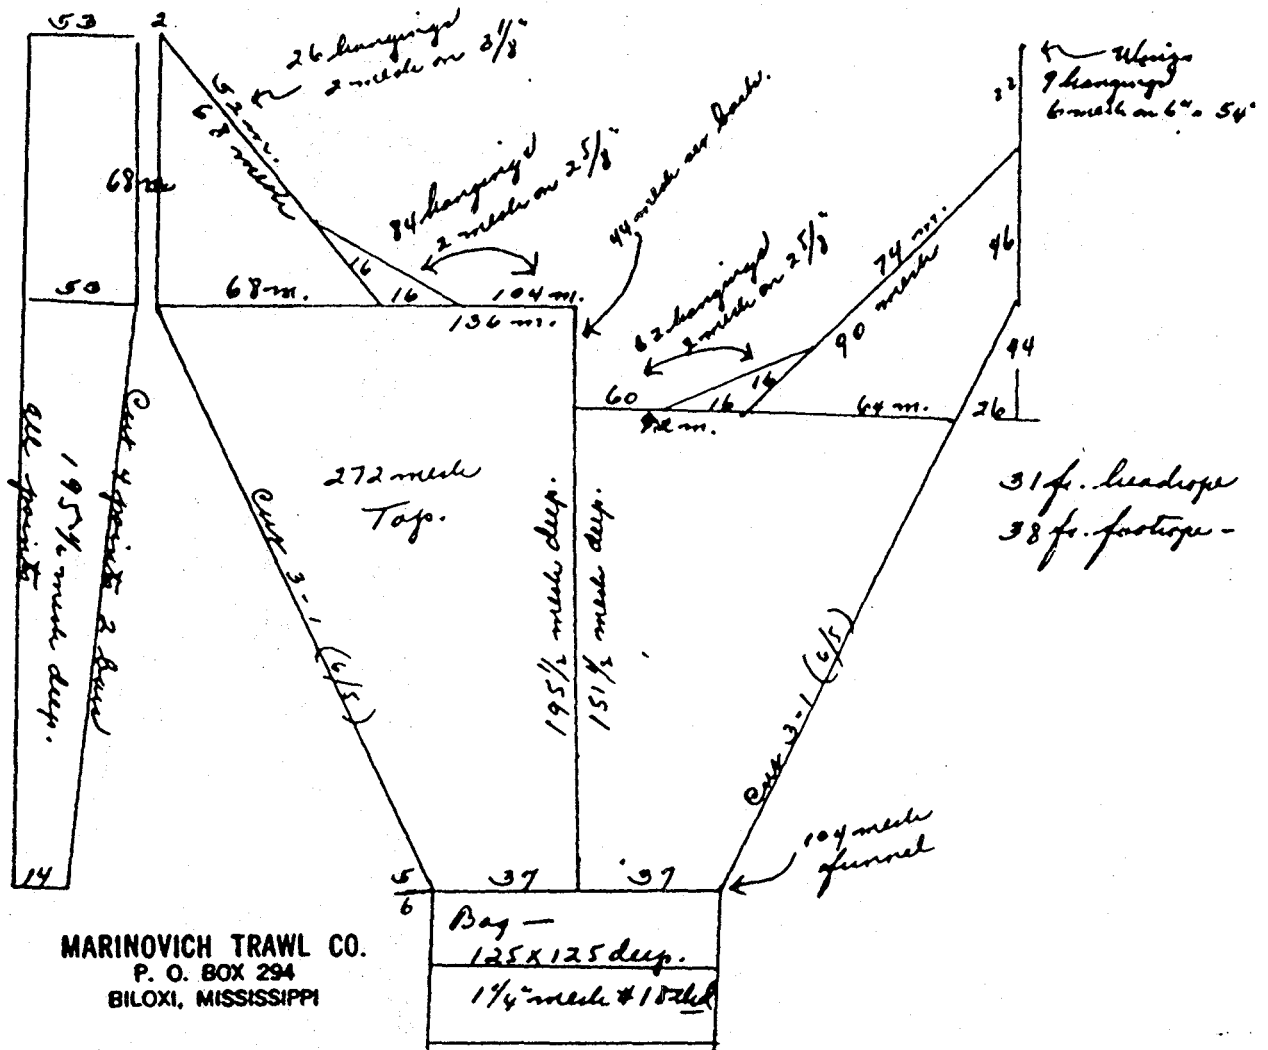 53
2
26 hangings
2 mesh on 3 1/8"
52 m.
68 mesh
68 m
84 hangings
2 mesh on 2 5/8"
44 mesh
back.
Wings
9 hangings
6 mesh on 6" = 54"
46
74 m.
90 mesh
62 hangings
2 mesh on 2 5/8"
50
68 m.
16
16
104 m.
136 m.
60
16
16
64 m.
26
44
31 ft. headrope
38 ft. footrope -
272 mesh
Top.
all points
195 1/2 mesh deep.
Cut 4 points 2 bars
Cut 3-1 (6/5)
195 1/2 mesh deep.
151 1/2 mesh deep.
Cut 3-1 (6/5)
104 mesh
funnel
14
5
6
37
37
Bag —
125 x 125 deep.
1 1/4" mesh # 18
MARINOVICH TRAWL CO.
P. O. BOX 294
BILOXI, MISSISSIPPI